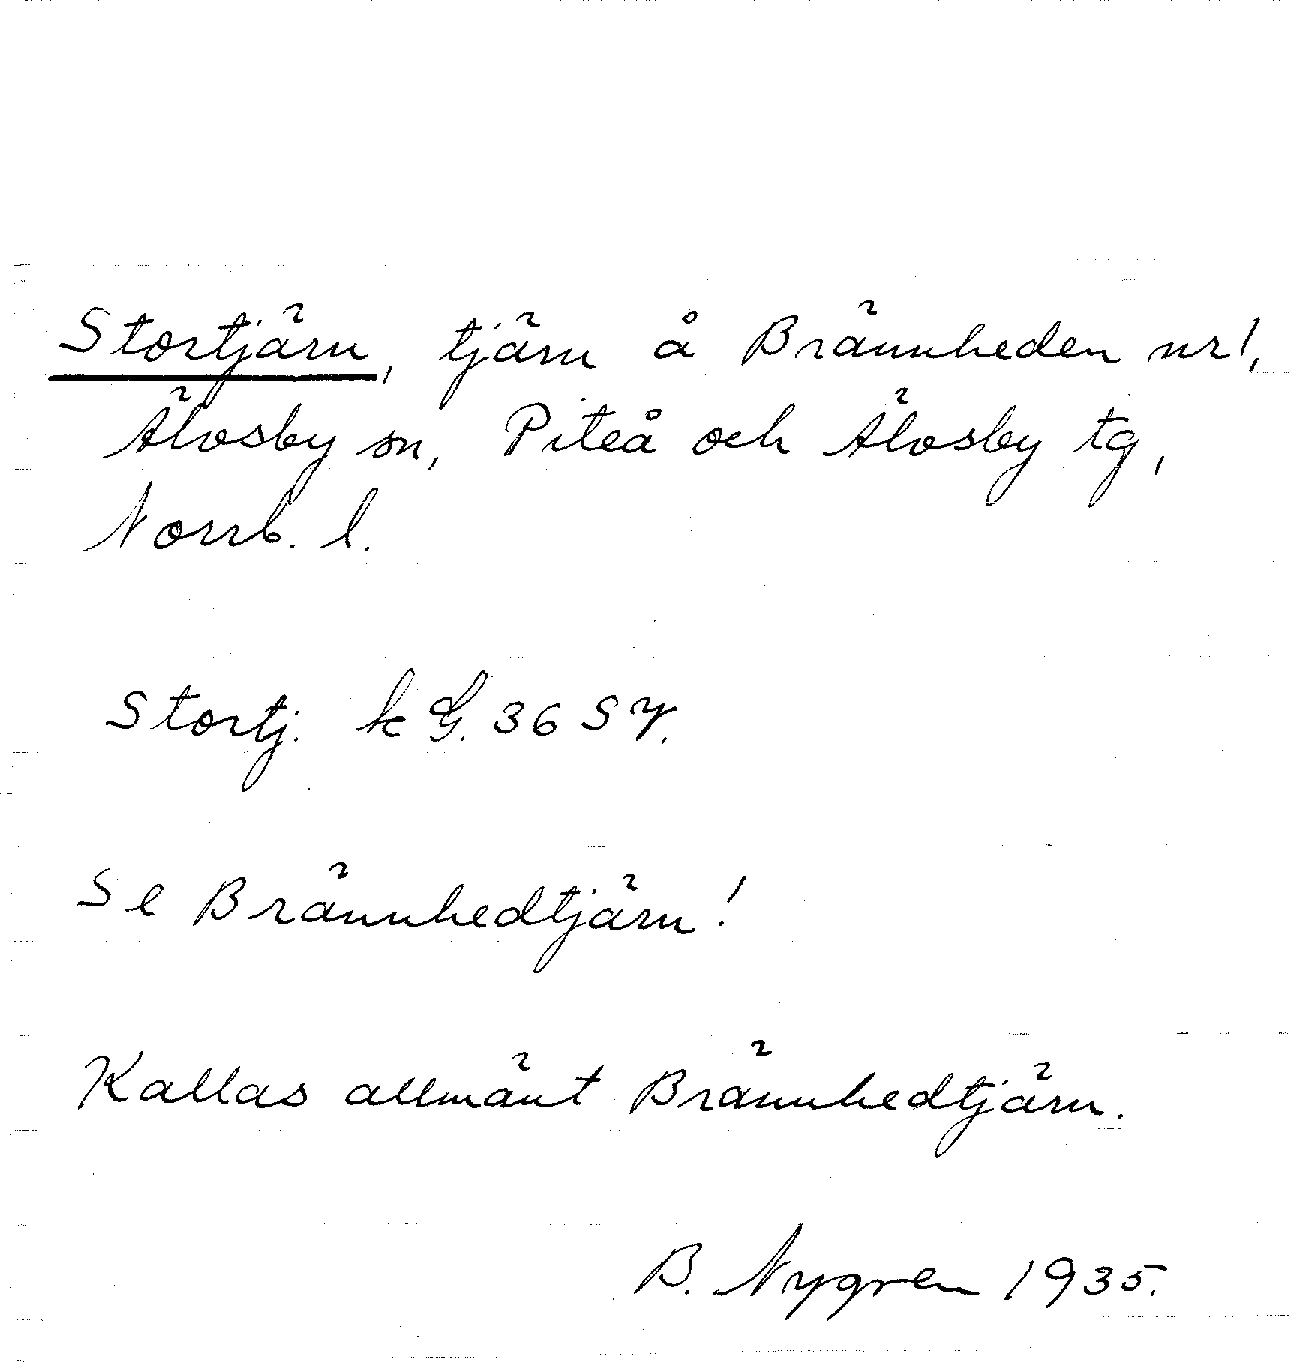 Stortjärn, tjärn å Brännheden nr 1,
Älvsby sn, Piteå och Älvsby tg,
Norrb. l.
Stortj. k G. 36 S V.
Se Brännhedtjärn!
Kallas allmänt Brännhedtjärn.
B. Nygren 1935.